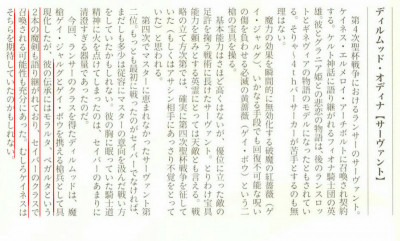 ディルムッド・オディナ【サーヴァント】
第4次聖杯戦争におけるランサーのサーヴァント。
ケイネス・エルメロイ・アーチボルトに召喚され契約
する。ケルト神話に語り継がれるフィオナ騎士団の英
雄。彼とグラニア姫との悲恋の物語は、後のランスロッ
トとギネヴィアの物語のモデルになったともされてい
る。そりゃアーサーもガウェインもディルムッドも無
理はない。
魔力の効果を瞬間的に無効化する破魔の紅薔薇（ゲ
イ・ジャルグ）、いかなる手段でも回復不可能な呪い
の傷を負わせる必滅の黄薔薇（ゲイ・ボウ）という二
槍の宝具を操る。
基本能力はさほど高くはないが、優位に立った敵の
足許を掬う戦術に長けたサーヴァント。とりわけ宝具
の能力を頼みとする英霊にとっては天敵とも言える。戦
略次第では、確実に第四次聖杯戦争を征して
いた（もしくはアサシン相手にあっさり不覚をとって
いた）と思われる。
第四次でマスターに恵まれなかったサーヴァント第
二位。もっとも最初に戦ったのがセイバーでなければ、
まだしも多少は従容にマスターの意向を汲んだ戦い方
をしていたかもしれない。彼の胸に宿っていた騎士道
精神に火を点けてしまったのは、セイバーのあまりに
清澄すぎる剣気だったのである。
今回、ランサーのクラスを得たディルムッドは、魔
槍ゲイ・ジャルグとゲイ・ボウを携える槍兵として具
現化したが、彼の伝承にはモラルタ、ベガルタという
2本の魔剣も語り継がれており、セイバーのクラスで
召喚される可能性も充分にあった。むしろケイネスは
そちらを期待していたのかもしれない。